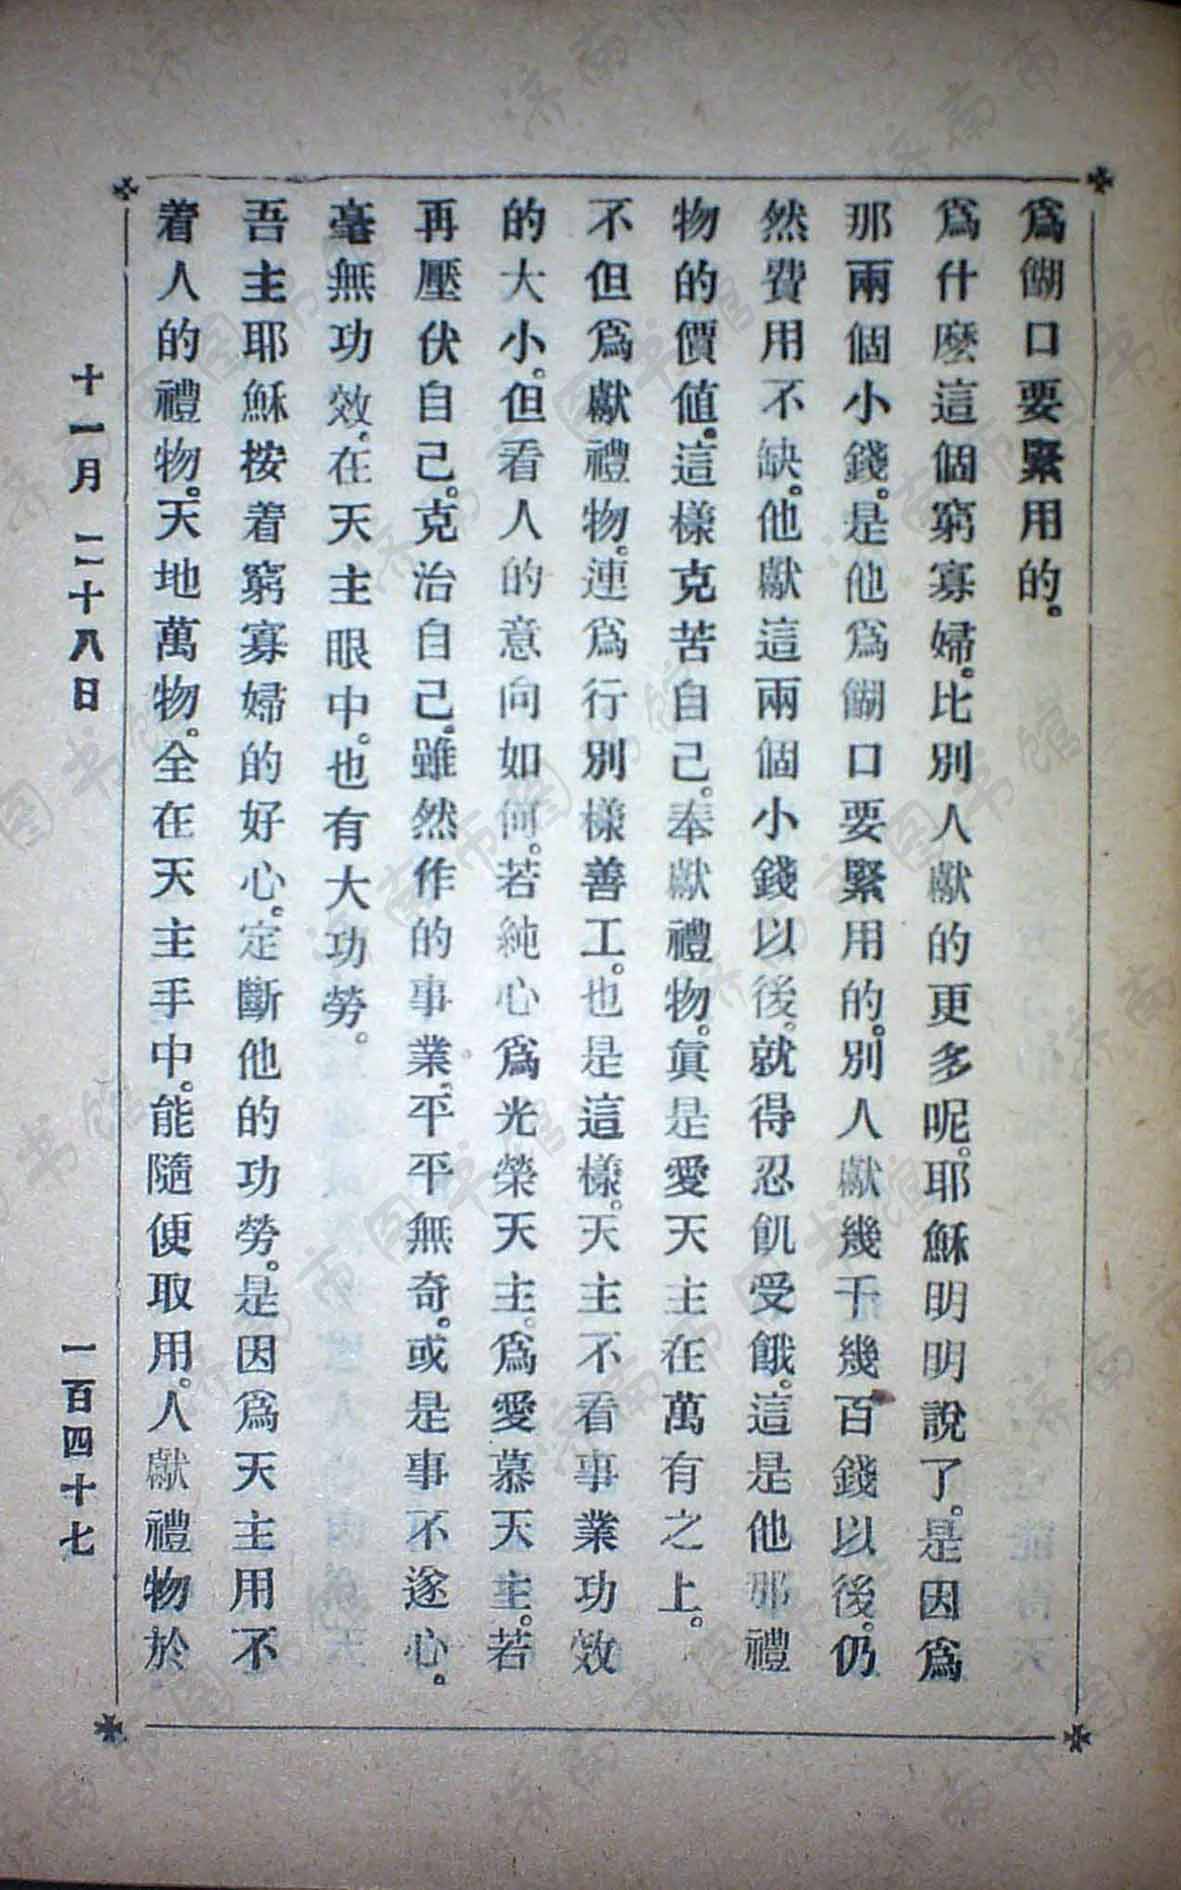 爲餬口要緊用的。
爲什麽這個窮寡婦。比别人獻的更多呢。耶穌明明說了。是因爲
那兩個小錢。是他爲餬口要緊用的。别人獻幾千幾百錢以後。仍
然費用不缺。他獻這兩個小錢以後。就得忍飢受餓。這是他那禮
物的價値。這樣克苦自己。奉獻禮物。眞是愛天主在萬有之上。
不但爲獻禮物。連爲行别樣善工。也是這樣。天主不看事業功效
的大小。但看人的意向如何。若純心爲光榮天主。爲愛慕天主。若
再壓伏自己。克治自己。雖然作的事業。平平無奇。或是事不遂心。
毫無功效。在天主眼中。也有大功勞。
吾主耶穌按着窮寡婦的好心。定斷他的功勞。是因爲天主用不
着人的禮物。天地萬物。全在天主手中。能隨便取用。人獻禮物於
十一月 二十八日
一百四十七
济南市图书馆